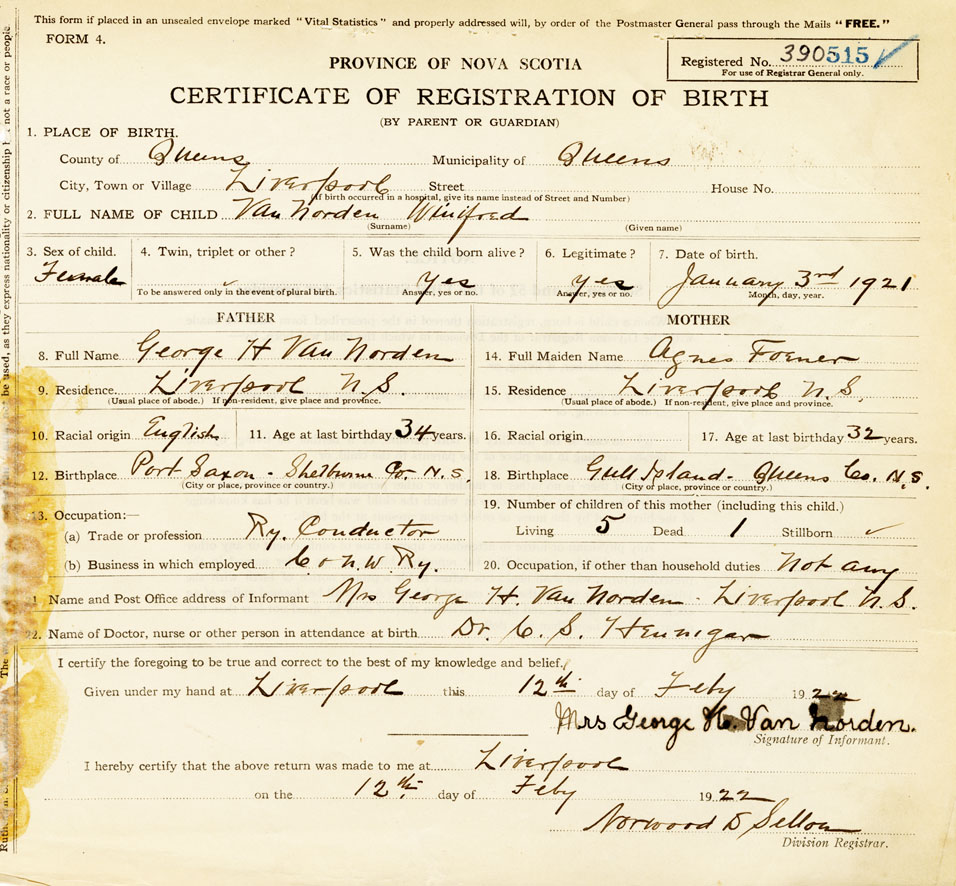 This form if placed in an unsealed envelope marked "Vital Statistics" and properly addressed will, by order of the Postmaster General pass through the Mails "FREE."
FORM 4.
Registered No. 390515
For use of Registrar General only.
PROVINCE OF NOVA SCOTIA
CERTIFICATE OF REGISTRATION OF BIRTH
(BY PARENT OR GUARDIAN)
1. PLACE OF BIRTH.
County of Queens Municipality of Queens
City, Town or Village Liverpool Street House No.
(If birth occurred in a hospital, give its name instead of Street and Number)
2. FULL NAME OF CHILD Van Norden Winifred
(Surname) (Given name)
3. Sex of child. 4. Twin, triplet or other? 5. Was the child born alive? 6. Legitimate? 7. Date of birth.
Female yes yes January 3rd 1921
To be answered only in the event of plural birth. Answer, yes or no. Answer, yes or no. Month, day, year.
FATHER MOTHER
8. Full Name George H Van Norden 14. Full Maiden Name Agnes
9. Residence Liverpool N.S. 15. Residence Liverpool N.S.
(Usual place of abode.) If non-resident, give place and province. (Usual place of abode.) If non-resident, give place and province.
10. Racial origin English 11. Age at last birthday 34 years. 16. Racial origin 17. Age at last birthday 32 years.
12. Birthplace Port Saxon - Shelburne Co. N.S. 18. Birthplace Gull Island - Queens Co. N.S.
(City or place, province or country.) (City or place, province or country.)
13. Occupation:— 19. Number of children of this mother (including this child.)
(a) Trade or profession Ry. Conductor Living 5 Dead 1 Stillborn ✓
(b) Business in which employed Ry. 20. Occupation, if other than household duties Not any
1. Name and Post Office address of Informant Mrs George H. Van Norden - Liverpool N.S.
2. Name of Doctor, nurse or other person in attendance at birth Dr. C. S. Hennigar
I certify the foregoing to be true and correct to the best of my knowledge and belief.
Given under my hand at Liverpool this 12th day of Feby 1922
Mrs George H. Van Norden.
Signature of Informant.
I hereby certify that the above return was made to me at Liverpool
on the 12th day of Feby 1922
Norwood
Division Registrar.
be used, as they express nationality or citizenship not a race or people